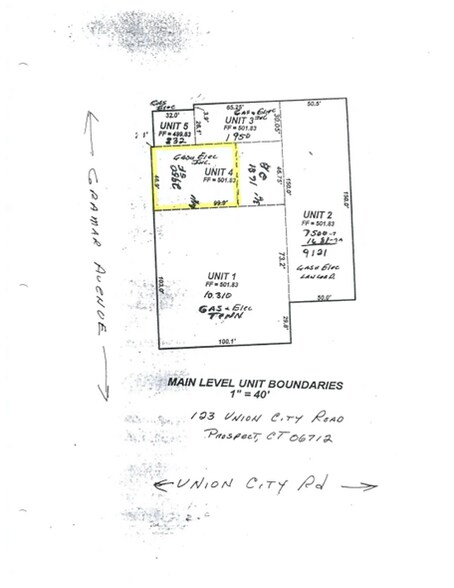 GAS
ELEC
32.0'
UNIT 5
FF = 499.83
832
65.25'
GAS & ELEC
UNIT 3
FF = 501.83
1950
30.05'
50.5'
GAS & ELEC
UNIT 4
FF = 501.83
2950
SF
99.9'
46.75'
1871
150.0'
150.0'
UNIT 2
FF = 501.83
7500
9121
GAS & ELEC
50.0'
73.2'
103.0'
UNIT 1
FF = 501.83
10,310
GAS & ELEC
TENN
100.1'
GRAMAR AVENUE
MAIN LEVEL UNIT BOUNDARIES
1" = 40'
123 UNION CITY ROAD
PROSPECT, CT 06712
UNION CITY Rd